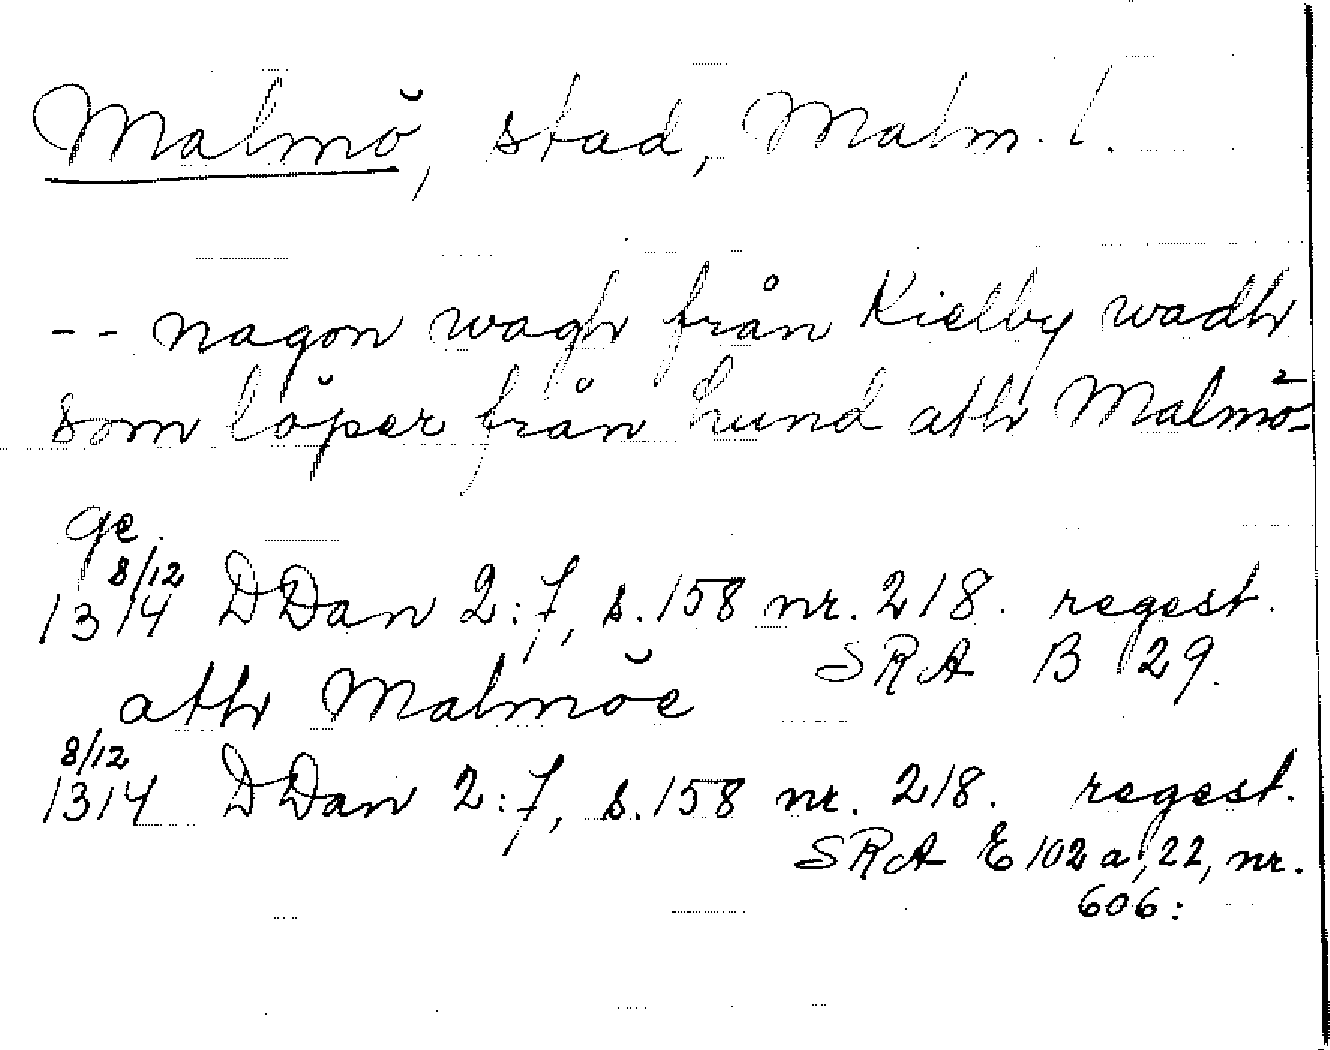 Malmö, stad, Malm. l.
-- nagon wagh från Kielby wadh
som löper från Lund ath Malmö-
ge.
8/12
1314 DDan 2:7, s. 158 nr. 218. regest.
SRA B 29.
ath Malmöe
8/12
1314 DDan 2:7, s. 158 nr. 218. regest.
SRA E 102 a, 22, nr.
606: